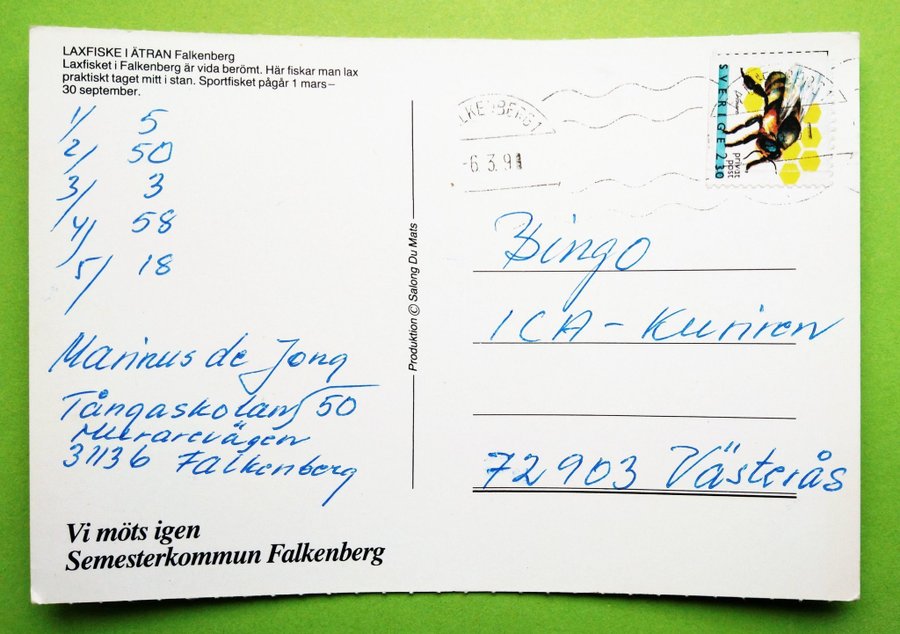 LAXFISKE I ÄTRAN Falkenberg
Laxfisket i Falkenberg är vida berömt. Här fiskar man lax
praktiskt taget mitt i stan. Sportfisket pågår 1 mars–
30 september.
1/ 5
2/ 50
3/ 3
4/ 58
5/ 18
Marinus de Jong
Tångaskolan 50
Murarevägen
31136 Falkenberg
Vi möts igen
Semesterkommun Falkenberg
Produktion © Salong Du Mats
LKENBERG 1
-6 3.91
SVERIGE 2.30
privat
post
Bingo
ICA-Kuriren
72903 Västerås